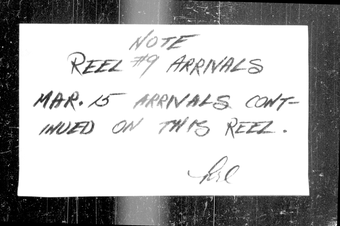 NOTE
REEL #9 ARRIVALS
MAR. 15 ARRIVALS CONT-
INUED ON THIS REEL.